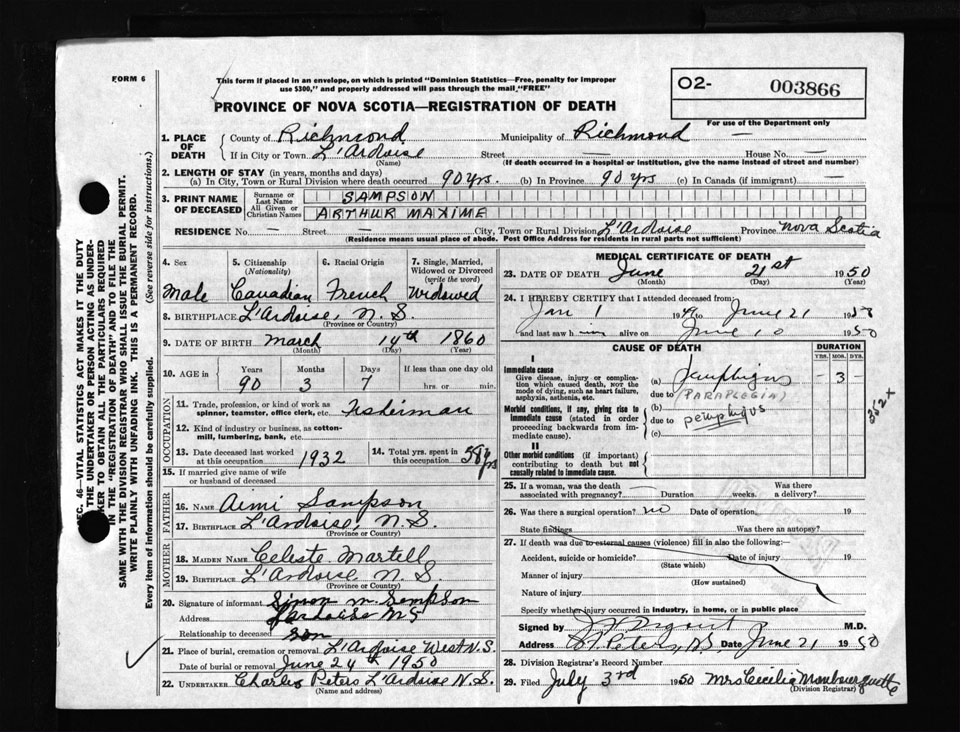 FORM 6
This form if placed in an envelope, on which is printed "Dominion Statistics—Free, penalty for improper
use $300," and properly addressed will pass through the mail "FREE"
PROVINCE OF NOVA SCOTIA—REGISTRATION OF DEATH
O2- 003866
For use of the Department only
SEC. 46—VITAL STATISTICS ACT MAKES IT THE DUTY
OF THE UNDERTAKER OR PERSON ACTING AS UNDER-
TAKER TO OBTAIN ALL THE PARTICULARS REQUIRED
IN THE "REGISTRATION OF DEATH" AND TO FILE THE
SAME WITH THE DIVISION REGISTRAR WHO SHALL ISSUE THE BURIAL PERMIT.
WRITE PLAINLY WITH UNFADING INK. THIS IS A PERMANENT RECORD.
Every item of information should be carefully supplied. (See reverse side for instructions.)
1. PLACE OF DEATH County of Richmond Municipality of Richmond —
If in City or Town L'Ardoise Street — House No. —
(Name) (If death occurred in a hospital or institution, give the name instead of street and number)
2. LENGTH OF STAY (in years, months and days)
(a) In City, Town or Rural Division where death occurred 90 yrs. (b) In Province 90 yrs (c) In Canada (if immigrant) —
3. PRINT NAME OF DECEASED Surname or Last Name SAMPSON
All Given or Christian Names ARTHUR MAXIME
RESIDENCE No. — Street — City, Town or Rural Division L'Ardoise Province Nova Scotia
(Residence means usual place of abode. Post Office Address for residents in rural parts not sufficient)
4. Sex 5. Citizenship (Nationality) 6. Racial Origin 7. Single, Married, Widowed or Divorced (write the word)
Male Canadian French Widowed
8. BIRTHPLACE L'Ardoise, N.S.
(Province or Country)
9. DATE OF BIRTH March 14th 1860
(Month) (Day) (Year)
10. AGE in Years Months Days If less than one day old
90 3 7 hrs. or min.
OCCUPATION
11. Trade, profession or kind of work as spinner, teamster, office clerk, etc. Fisherman
12. Kind of industry or business, as cotton-mill, lumbering, bank, etc.
13. Date deceased last worked at this occupation 1932 14. Total yrs. spent in this occupation 58 yrs
15. If married give name of wife or husband of deceased
FATHER
16. NAME Aimi Sampson
17. BIRTHPLACE L'Ardoise, N.S.
(Province or Country)
MOTHER
18. MAIDEN NAME Celeste Martell
19. BIRTHPLACE L'Ardoise N.S.
(Province or Country)
20. Signature of informant Simon M. Sampson
Address Lardoise NS
Relationship to deceased son
21. Place of burial, cremation or removal L'Ardoise West N.S.
Date of burial or removal June 24th 1950
22. UNDERTAKER Charles Peters L'Ardoise N.S.
(Name and address)
MEDICAL CERTIFICATE OF DEATH
23. DATE OF DEATH June 21st 1950
(Month) (Day) (Year)
24. I HEREBY CERTIFY that I attended deceased from:
Jan 1 19 to June 21 1950
and last saw him alive on June 10 1950
CAUSE OF DEATH DURATION
YRS. MOS. DYS.
I
Immediate cause
Give disease, injury or complication which caused death, NOT the mode of dying, such as heart failure, asphyxia, asthenia, etc.
(a) Pemphigus – 3 –
due to (PARAPLEGIA)
Morbid conditions, if any, giving rise to immediate cause (stated in order proceeding backwards from immediate cause).
(b)
due to pemphigus
(c)
II
Other morbid conditions (if important) contributing to death but not causally related to immediate cause.
25. If a woman, was the death associated with pregnancy? — Duration weeks. Was there a delivery?
26. Was there a surgical operation? no Date of operation 19
State findings Was there an autopsy?
27. If death was due to external causes (violence) fill in also the following:—
Accident, suicide or homicide? Date of injury 19
(State which)
Manner of injury
(How sustained)
Nature of injury
Specify whether injury occurred in industry, in home, or in public place
Signed by M.D.
Address St Peters, NS Date June 21 1950
28. Division Registrar's Record Number
29. Filed July 3rd 1950 Mrs Cecilia
(Division Registrar)